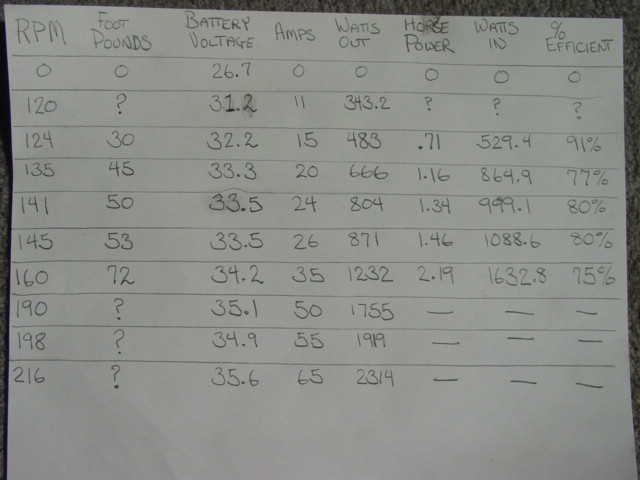 RPM FOOT POUNDS BATTERY VOLTAGE AMPS WATTS OUT HORSE POWER WATTS IN % EFFICIENT
0 0 26.7 0 0 0 0 0
120 ? 31.2 11 343.2 ? ? ?
124 30 32.2 15 483 .71 529.4 91%
135 45 33.3 20 666 1.16 864.9 77%
141 50 33.5 24 804 1.34 999.1 80%
145 53 33.5 26 871 1.46 1088.6 80%
160 72 34.2 35 1232 2.19 1632.8 75%
190 ? 35.1 50 1755 — — —
198 ? 34.9 55 1919 — — —
216 ? 35.6 65 2314 — — —